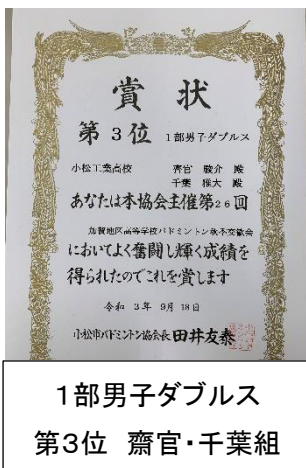 賞状
第3位 1部男子ダブルス
小松工業高校 齊官 駿介 殿
千葉 雅大 殿
あなたは本協会主催第26回
加賀地区高等学校バドミントン秋季交歓会
においてよく奮闘し輝く成績を
得られたのでこれを賞します
令和 3年 9月 18日
小松市バドミントン協会長 田井友泰
1部男子ダブルス
第3位 齋官・千葉組